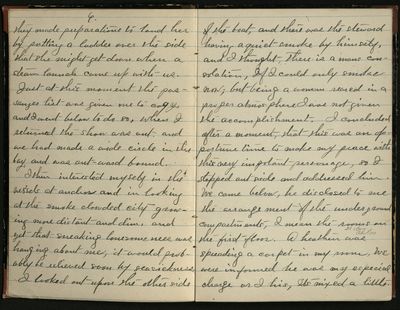 6.
they made preparations to land her
by putting a ladder over the side
that she might get down when a
steam launch came up with us.
Just at this moment the pas-
senger list was given me to copy,
and I went below to do so, when I
returned the shore was out, and
we had made a wide circle in the
bay and was out-ward bound.
I then interested myself in the
vessels at anchor and in looking
at the smoke clouded city grow-
ing more distant and dim, and
yet that sneaking lonesome was
hanging about me, it would prob-
ably be relieved soon by seasickness
I looked out upon the other side
of the boat, and there was the steward
having a quiet smoke by himself,
and I thought, there is a mans con-
solation, If I could only smoke
now, but being a woman reared in a
proper atmosphere I was not given
the accomplishment. I concluded
after a moment, that this was an op-
portune time to make my peace with
this very important personage, so I
stepped out side and addressed him.
We came below, he disclosed to me
the arrangement of the under, ground
compartments, I mean the rooms on
the first floor. A heathen was
spreading a carpet in my room, we
were informed he was my especial
charge or I his, He mixed a little